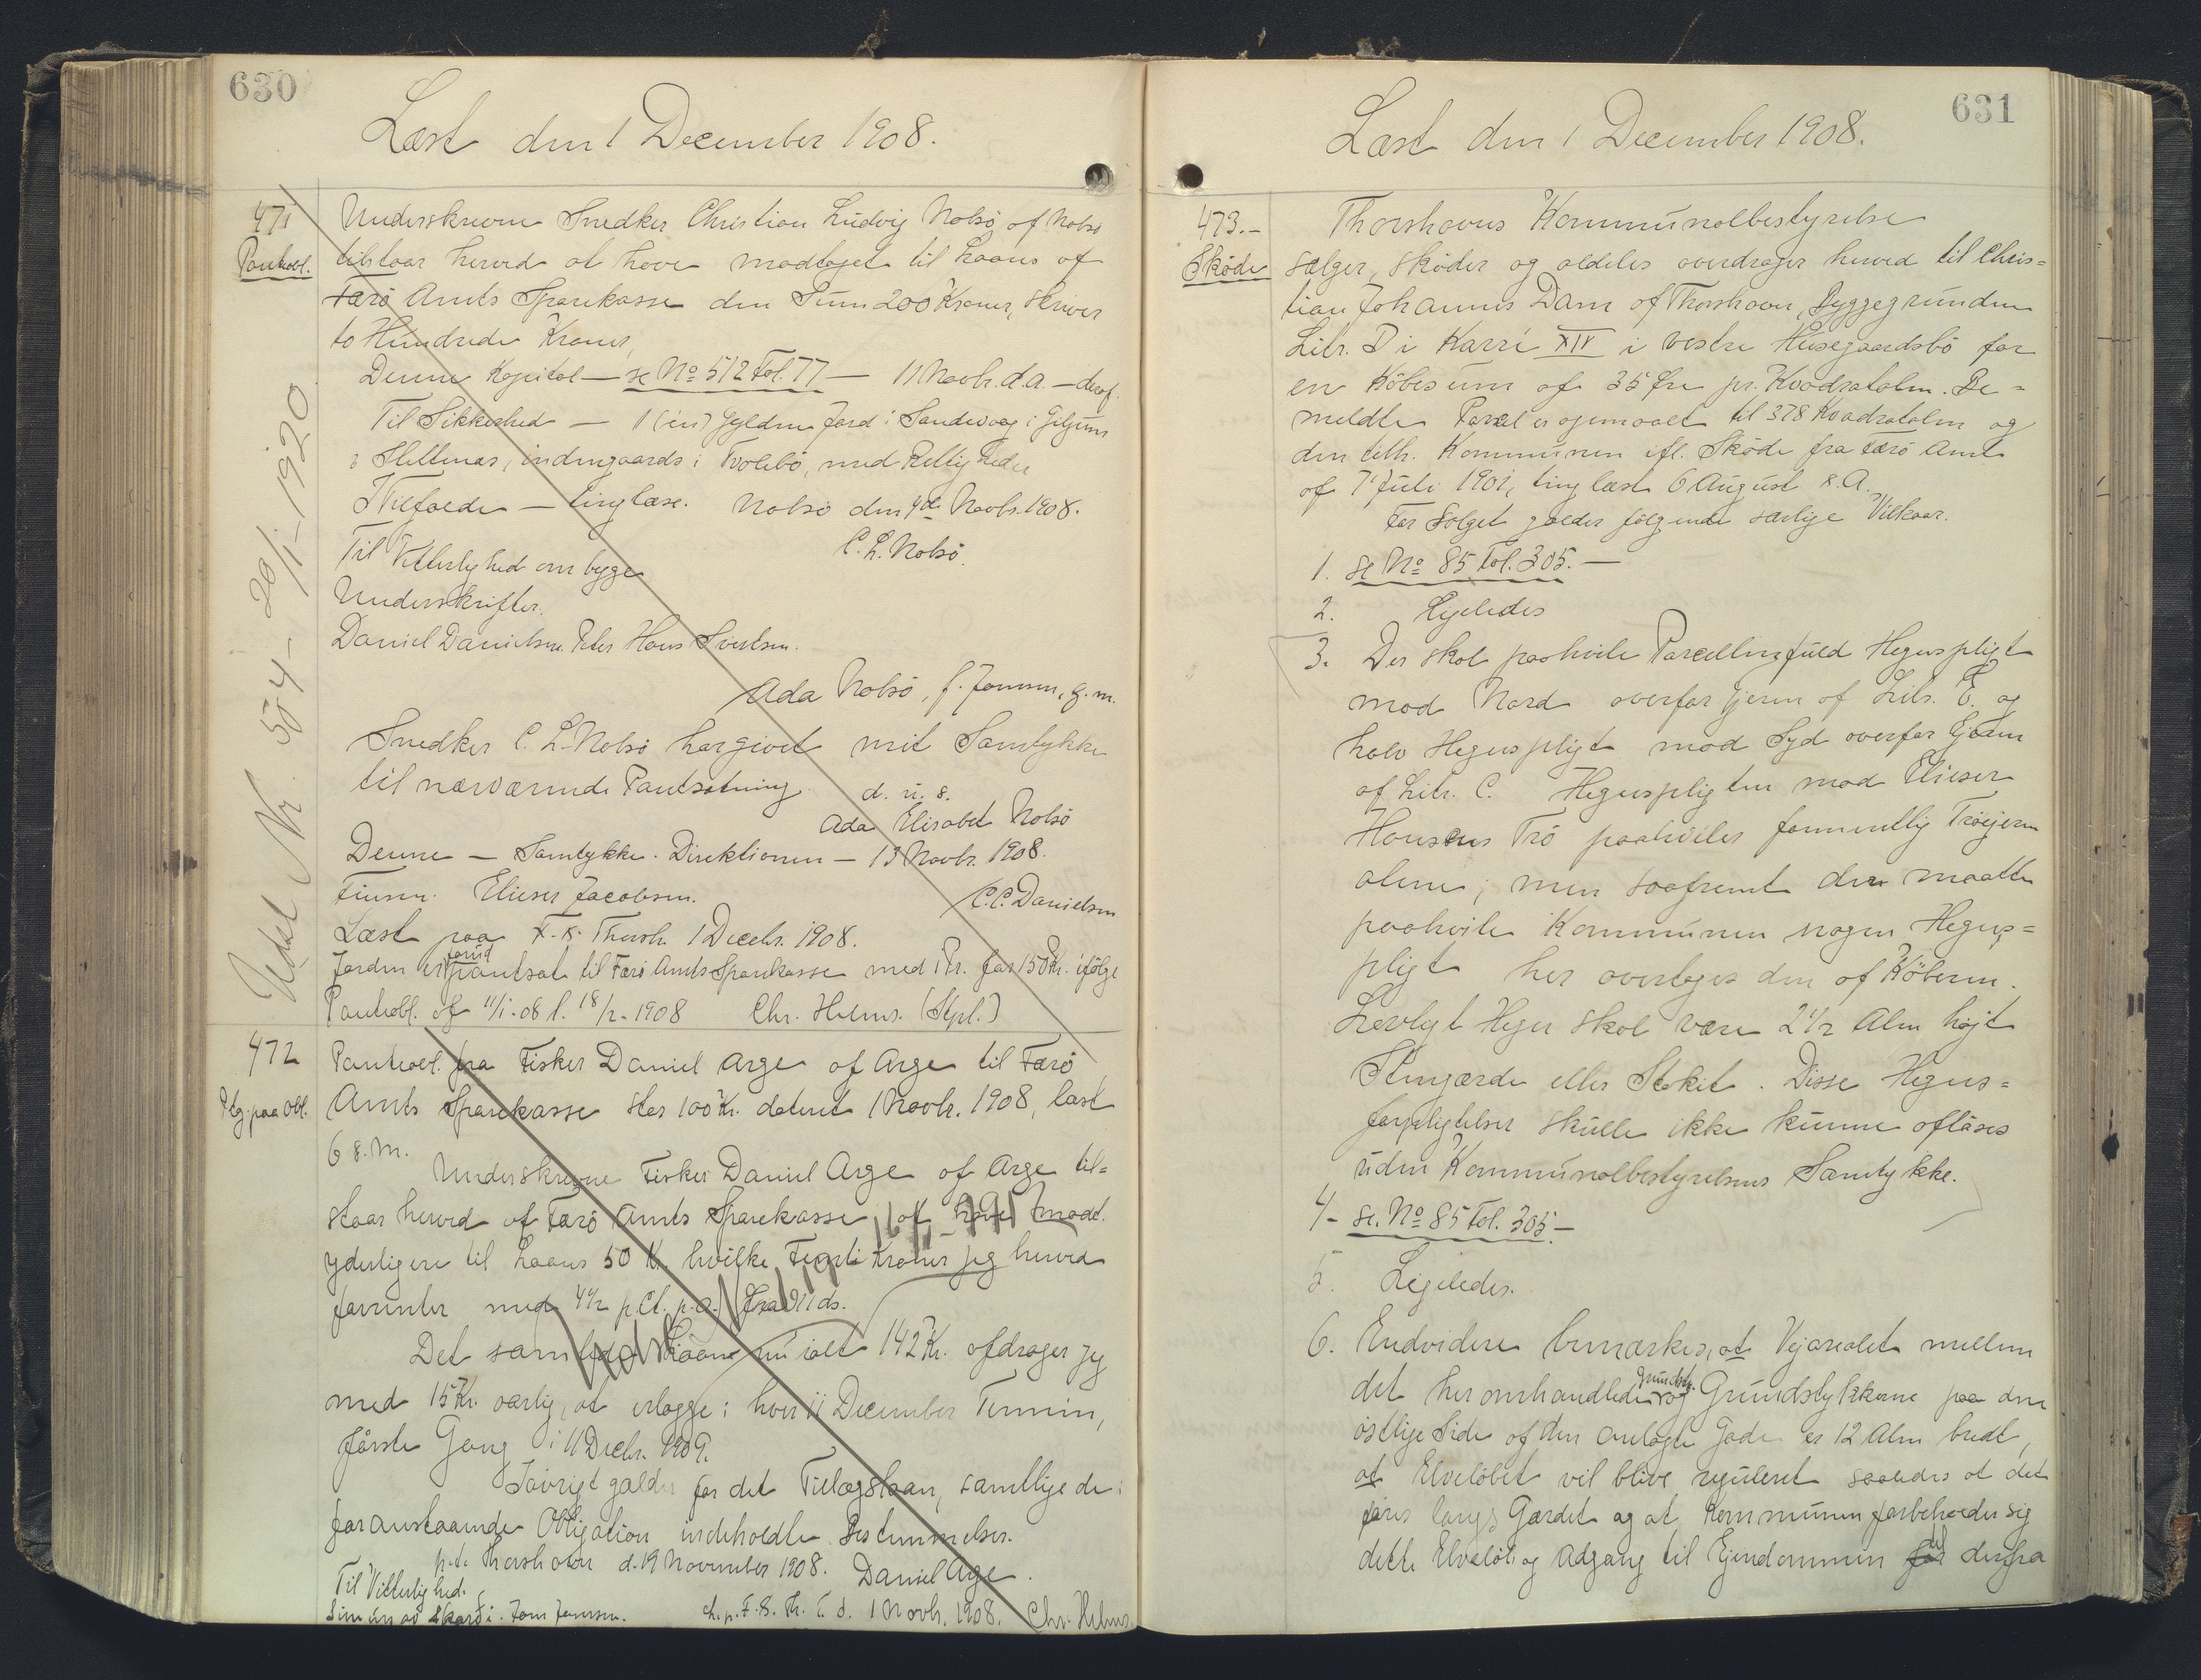 630
Læst den 1 December 1908.
471
Pantobl.
Underskrevne Snedker Christian Ludvig Nolsö af Nolsö
tilstaar herved at have modtaget til Laans af
Færö Amts Sparekasse den Sum 200 Kroner, skriver
to Hundrede Kroner,
Denne Kapital — se No 512 Fol. 77 — 11 Novbr. d.a. — deraf.
Til Sikkerhed — 1 (een) Gylden Jord i Sandevaag i
i Slettenæs, indengaards i Tvolebö, med Rettigheder
I Tilfælde — tinglæse. Nolsö den 4de Novbr. 1908.
C. L. Nolsö.
Til Vitterlighed om begge
Underskrifter.
Daniel Danielsen. Peter Hans Sivertsen.
Ada Nolsö, f. Joensen, g. m.
Snedker C. L. Nolsö har givet mit Samtykke
til nærværende Pantsætning
d. u. s.
Ada Elisabet Nolsö
Denne — Samtykke. Direktionen — 13 Novbr. 1908.
Finsen. Elieser Jacobsen. C.C. Danielsen
Læst paa F. K. Thorsh. 1 Decebr. 1908.
Jorden er forud pantsat til Færö Amts Sparekasse med 1 Pr. for 150 Kr. ifölge
Pantobl. af 11/1-08 l. 18/2-1908 Chr. Holms. (Stpl.)
Slettet Nr. 554 - 20/1-1920
472
Ptg. paa Obl.
Pantobl. fra Fisker Daniel Arge af Arge til Færö
Amts Sparekasse stor 100 Kr. dateret 1 Novbr. 1908, læst
6 s. M.
Underskrevne Fisker Daniel Arge af Arge til-
staar herved af Færö Amts Sparekasse at have modt.
yderligere til Laans 50 Kr. hvilke Femti Kroner jeg herved
forrenter med 4 1/2 p.Ct. p.a. fra 11 ds.
Det samlede Laan nu ialt 142 Kr. afdrager jeg
med 15 Kr. aarlig, at erlægge i hver 11 December Termin,
förste Gang i 11 Decbr. 1909.
Iövrigt gælder for det Tillægslaan, samtlige de i
foranstaaende Obligation indeholdte Bestemmelser.
p.t. Thorshavn d. 19 November 1908. Daniel Arge.
Til Vitterlighed.
Simun av Skarði. Jens Jensen. 1 Novbr. 1908. Chr. Holms.
631
Læst den 1 December 1908.
473.-
Sköde
Thorshavns Kommunalbestyrelse
sælger, sköder og aldeles overdrager herved til Chris=
tian Johannes Dam af Thorshavn, Byggegrunden
Litr. D i Karré XIV i Vestre Husegaardsbö for
en Köbesum af 35 Öre pr. Kvadratalen. Be-
meldte Parcel er opmaalt til 378 Kvadratalen og
den tilh. Kommunen ifl. Sköde fra Færö Amt
af 7 Juli 1901, tinglæst 6 August s. A.
For Salget gælder fölgende særlige Vilkaar.
1. se No 85 Fol. 305.—
2. Ligeledes
3. Der skal paahvile Parcellen fuld Hegnspligt
mod Nord overfor Ejeren af Litr. E. og
halv Hegnspligt mod Syd overfor Ejeren
af Litr. C. Hegnspligten mod Elieser
Hansens Trö paahviler formentlig Tröejeren
alene; men saafremt der maatte
paahvile Kommunen nogen Hegns=
pligt her overtages den af Köberen.
Lovligt Hegn skal være 2 1/2 Alen højt
Stengærde eller Stakit. Disse Hegns=
forpligtelser skulle ikke kunne aflöses
uden Kommunalbestyrelsens Samtykke.
4- se. No 85 Fol. 305-
5. Ligeledes.
6. Endvidere bemærkes, at Vejarealet mellem
det her omhandlede Grundst. og Grundstykkerne paa den
östlige Side af den anlagte Gade er 12 Alen bredt,
at Elvelöbet vil blive reguleret saaledes at det
föres langs Gærdet og at Kommunen forbeholder sig
dette Elvelöb og Adgang til Ejendommen til derfra